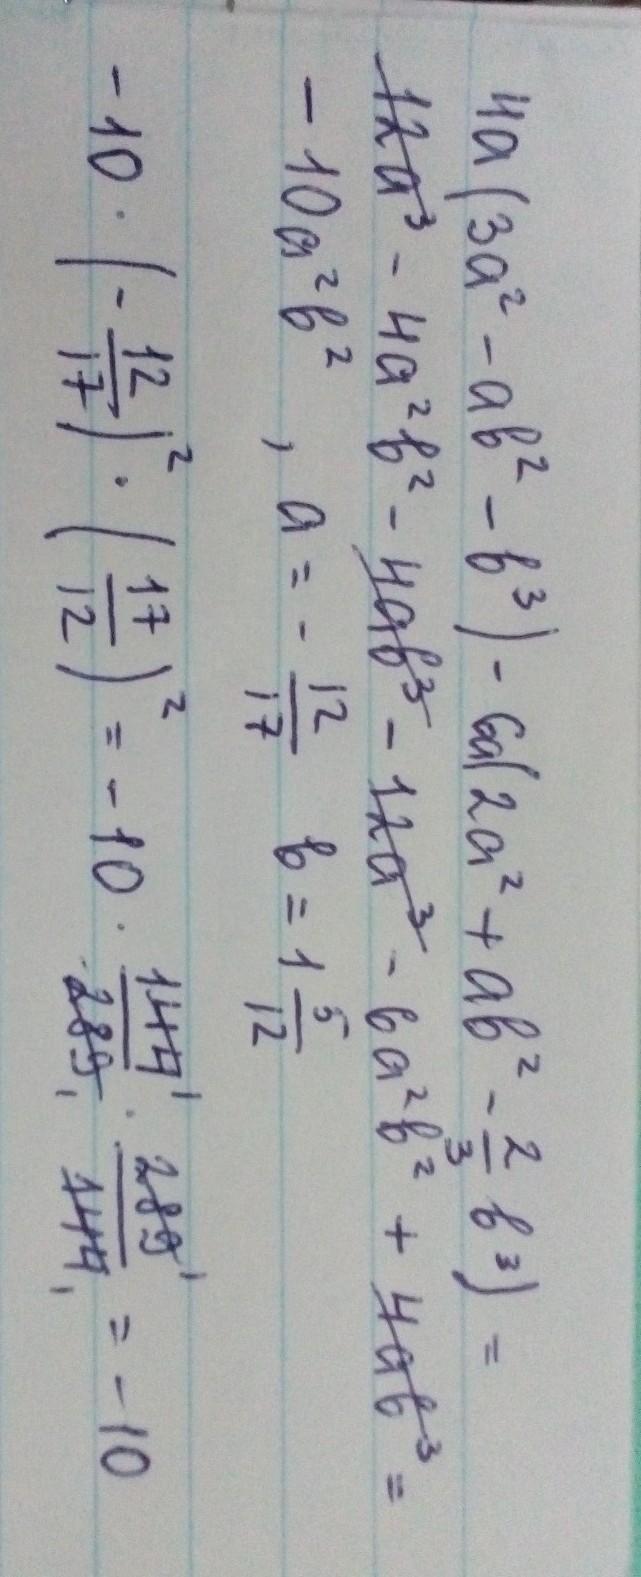 4a(3a² - ab² - b³) - 6a(2a² + ab² - 2/3 b³) =
12a³ - 4a²b² - 4ab³ - 12a³ - 6a²b² + 4ab³ =
- 10a²b² , a = - 12/17 b = 1 5/12
- 10 · (- 12/17)² · (17/12)² = - 10 · 144/289 · 289/144 = - 10